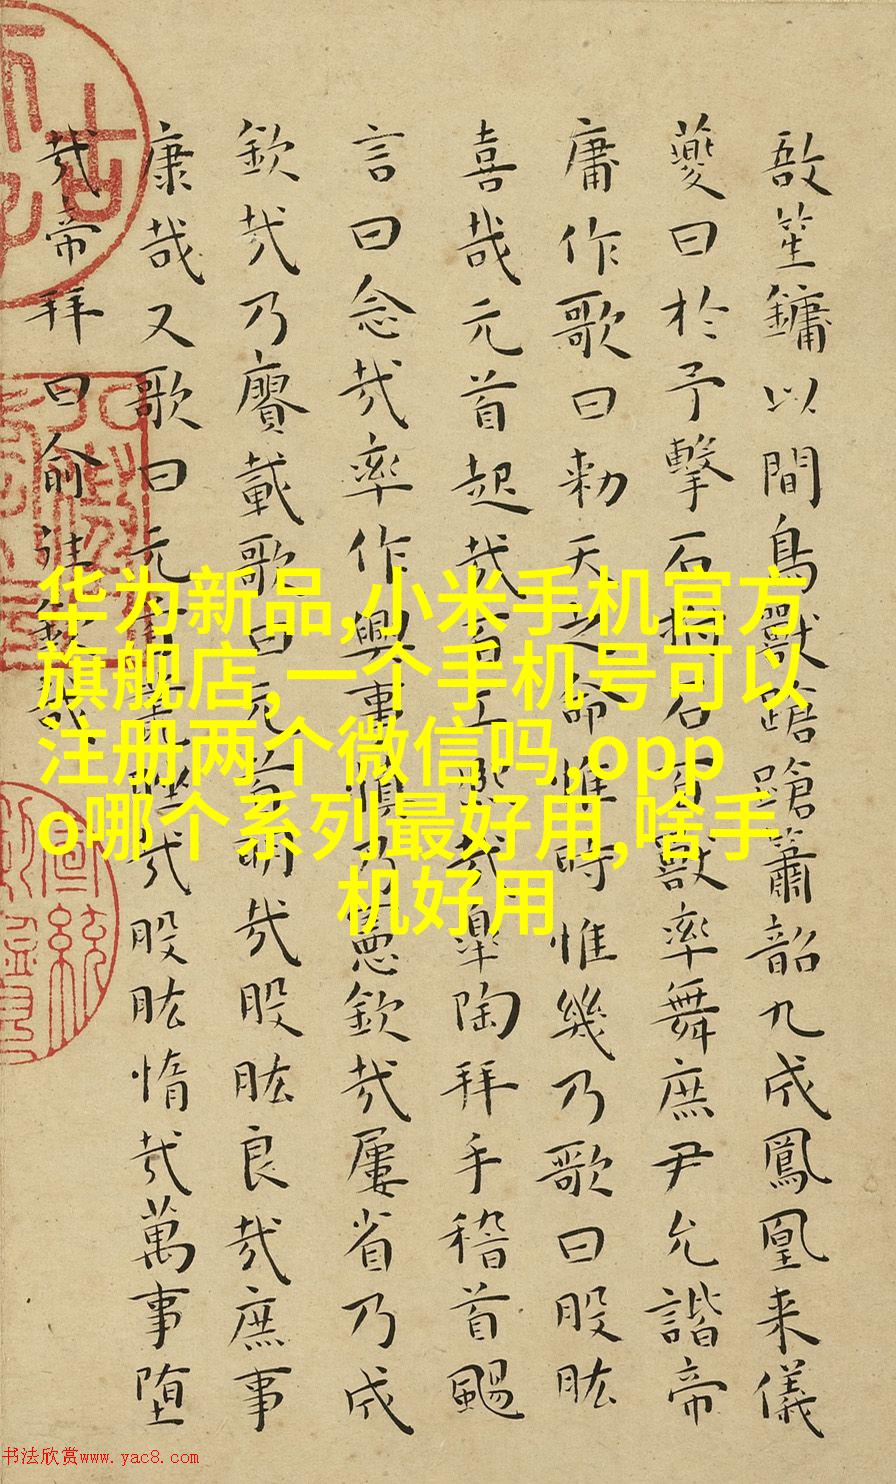 敔笙鏞以間鳥獸蹌蹌簫韶九成鳳凰来儀
夔曰於予擊石拊石百獸率舞庶尹允諧帝
庸作歌曰勑天之命惟時惟幾乃歌曰股肱
喜哉元首起哉百工熙哉臯陶拜手稽首颺
言曰念哉率作興事慎乃憲欽哉屢省乃成
欽哉乃賡載歌曰元首明哉股肱良哉庶事
康哉又歌曰元首叢脞哉股肱惰哉萬事堕
哉帝拜曰俞往欽哉
华为新品,小米手机官方
旗舰店,一个手机号可以
注册两个微信吗,opp
o哪个系列最好用,啥手
机好用
书法欣赏www.yac8.com